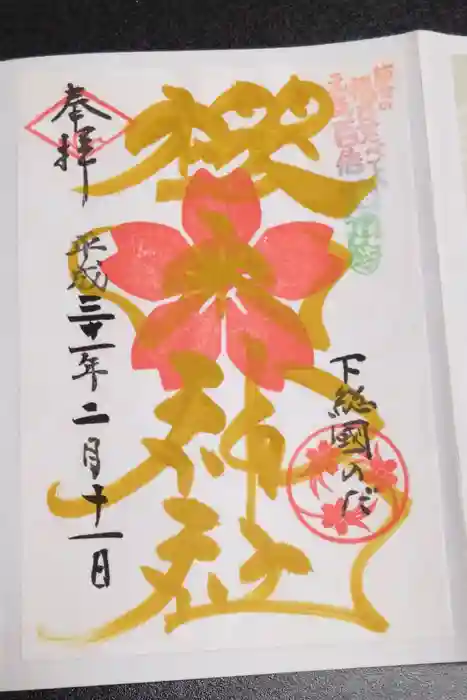 奉拝
櫻木神社
下総國のだ
平成三十一年二月十一日